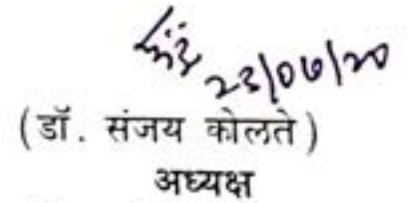 23/07/20
(डॉ. संजय कोलते)
अध्यक्ष